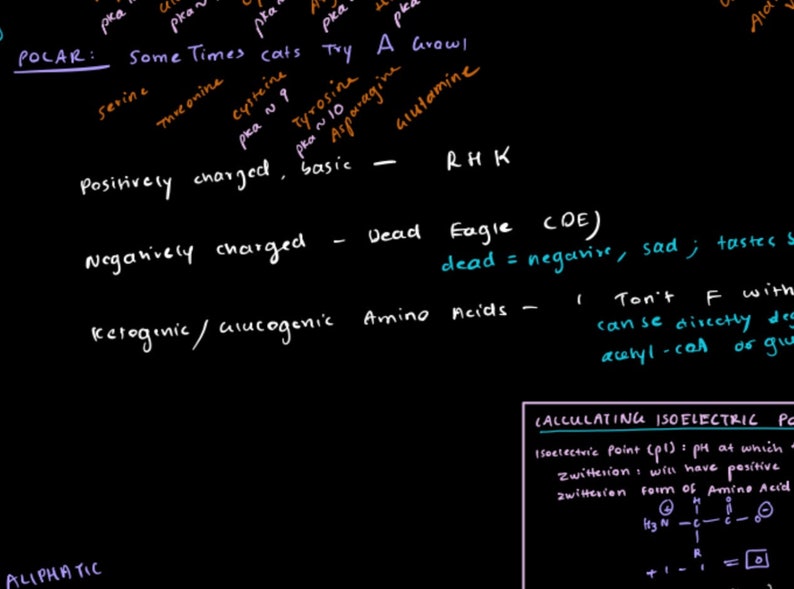 pka
pka ~
pka ~
pka ~
pka
POLAR: Some Times cats Try A Growl
serine
Threonine
cysteine
pka ~ 9
Tyrosine
pka ~ 10
Asparagine
Glutamine
Positively charged, basic — R H K
Negatively charged - Dead Eagle (DE)
dead = negative, sad ; tastes s
Ketogenic / Glucogenic Amino Acids - I Ton't F with
can be directly deg
acetyl-COA or glu
CALCULATING ISOELECTRIC PO
Isoelectric Point (pI) : pH at which
Zwitterion : will have positive
zwitterion form of Amino Acid
H O
H3N + - C - C - O -
R
+ 1 - 1 = 0
ALIPHATIC